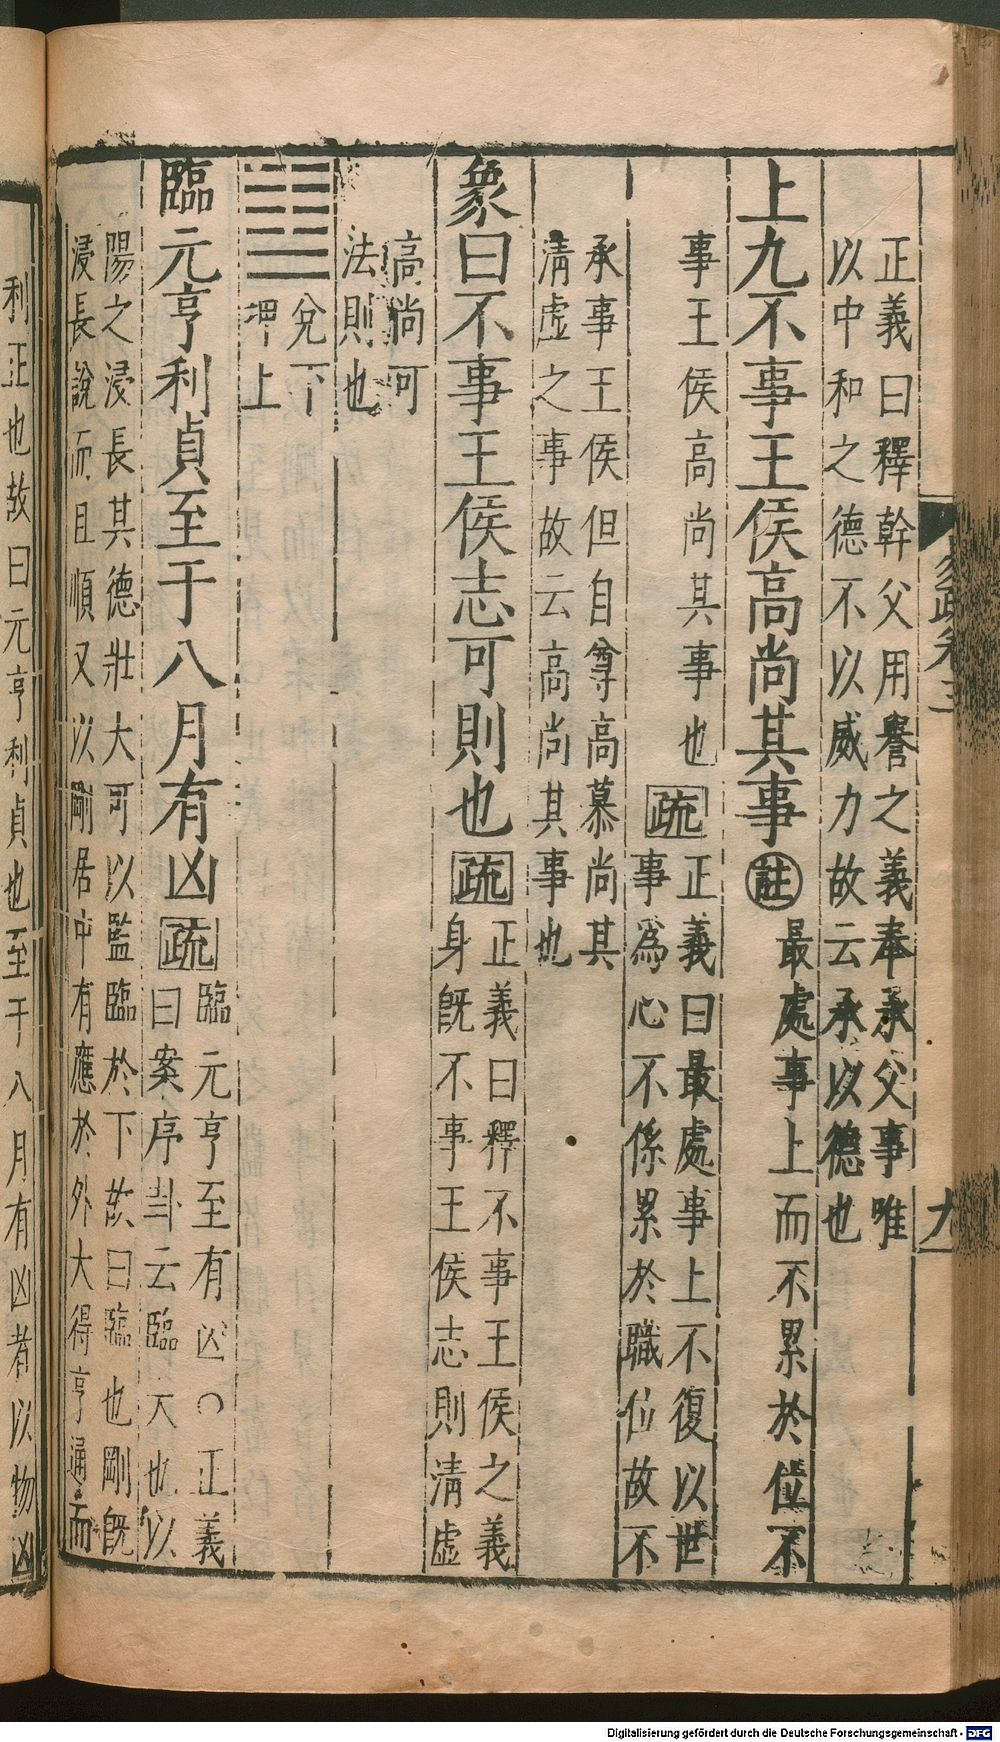 正義曰釋幹父用譽之義奉承父事唯
以中和之德不以威力故云承以德也
上九不事王侯高尚其事註最處事上而不累於位不
事王侯高尚其事也疏正義曰最處事上不復以世
事為心不係累於職位故不
承事王侯但自尊高慕尚其
清虛之事故云高尚其事也
象曰不事王侯志可則也疏正義曰釋不事王侯之義
身既不事王侯志則清虛
高尚可
法則也
䷒兌下
坤上
臨元亨利貞至于八月有凶疏臨元亨至有凶○正義
曰案序卦云臨大也以
陽之浸長其德壯大可以監臨於下故曰臨也剛既
浸長說而且順又以剛居中有應於外大得亨通而
利正也故曰元亨利貞也至于八月有凶者以物凶
易疏卷三
九
Digitalisierung gefördert durch die Deutsche Forschungsgemeinschaft - DFG